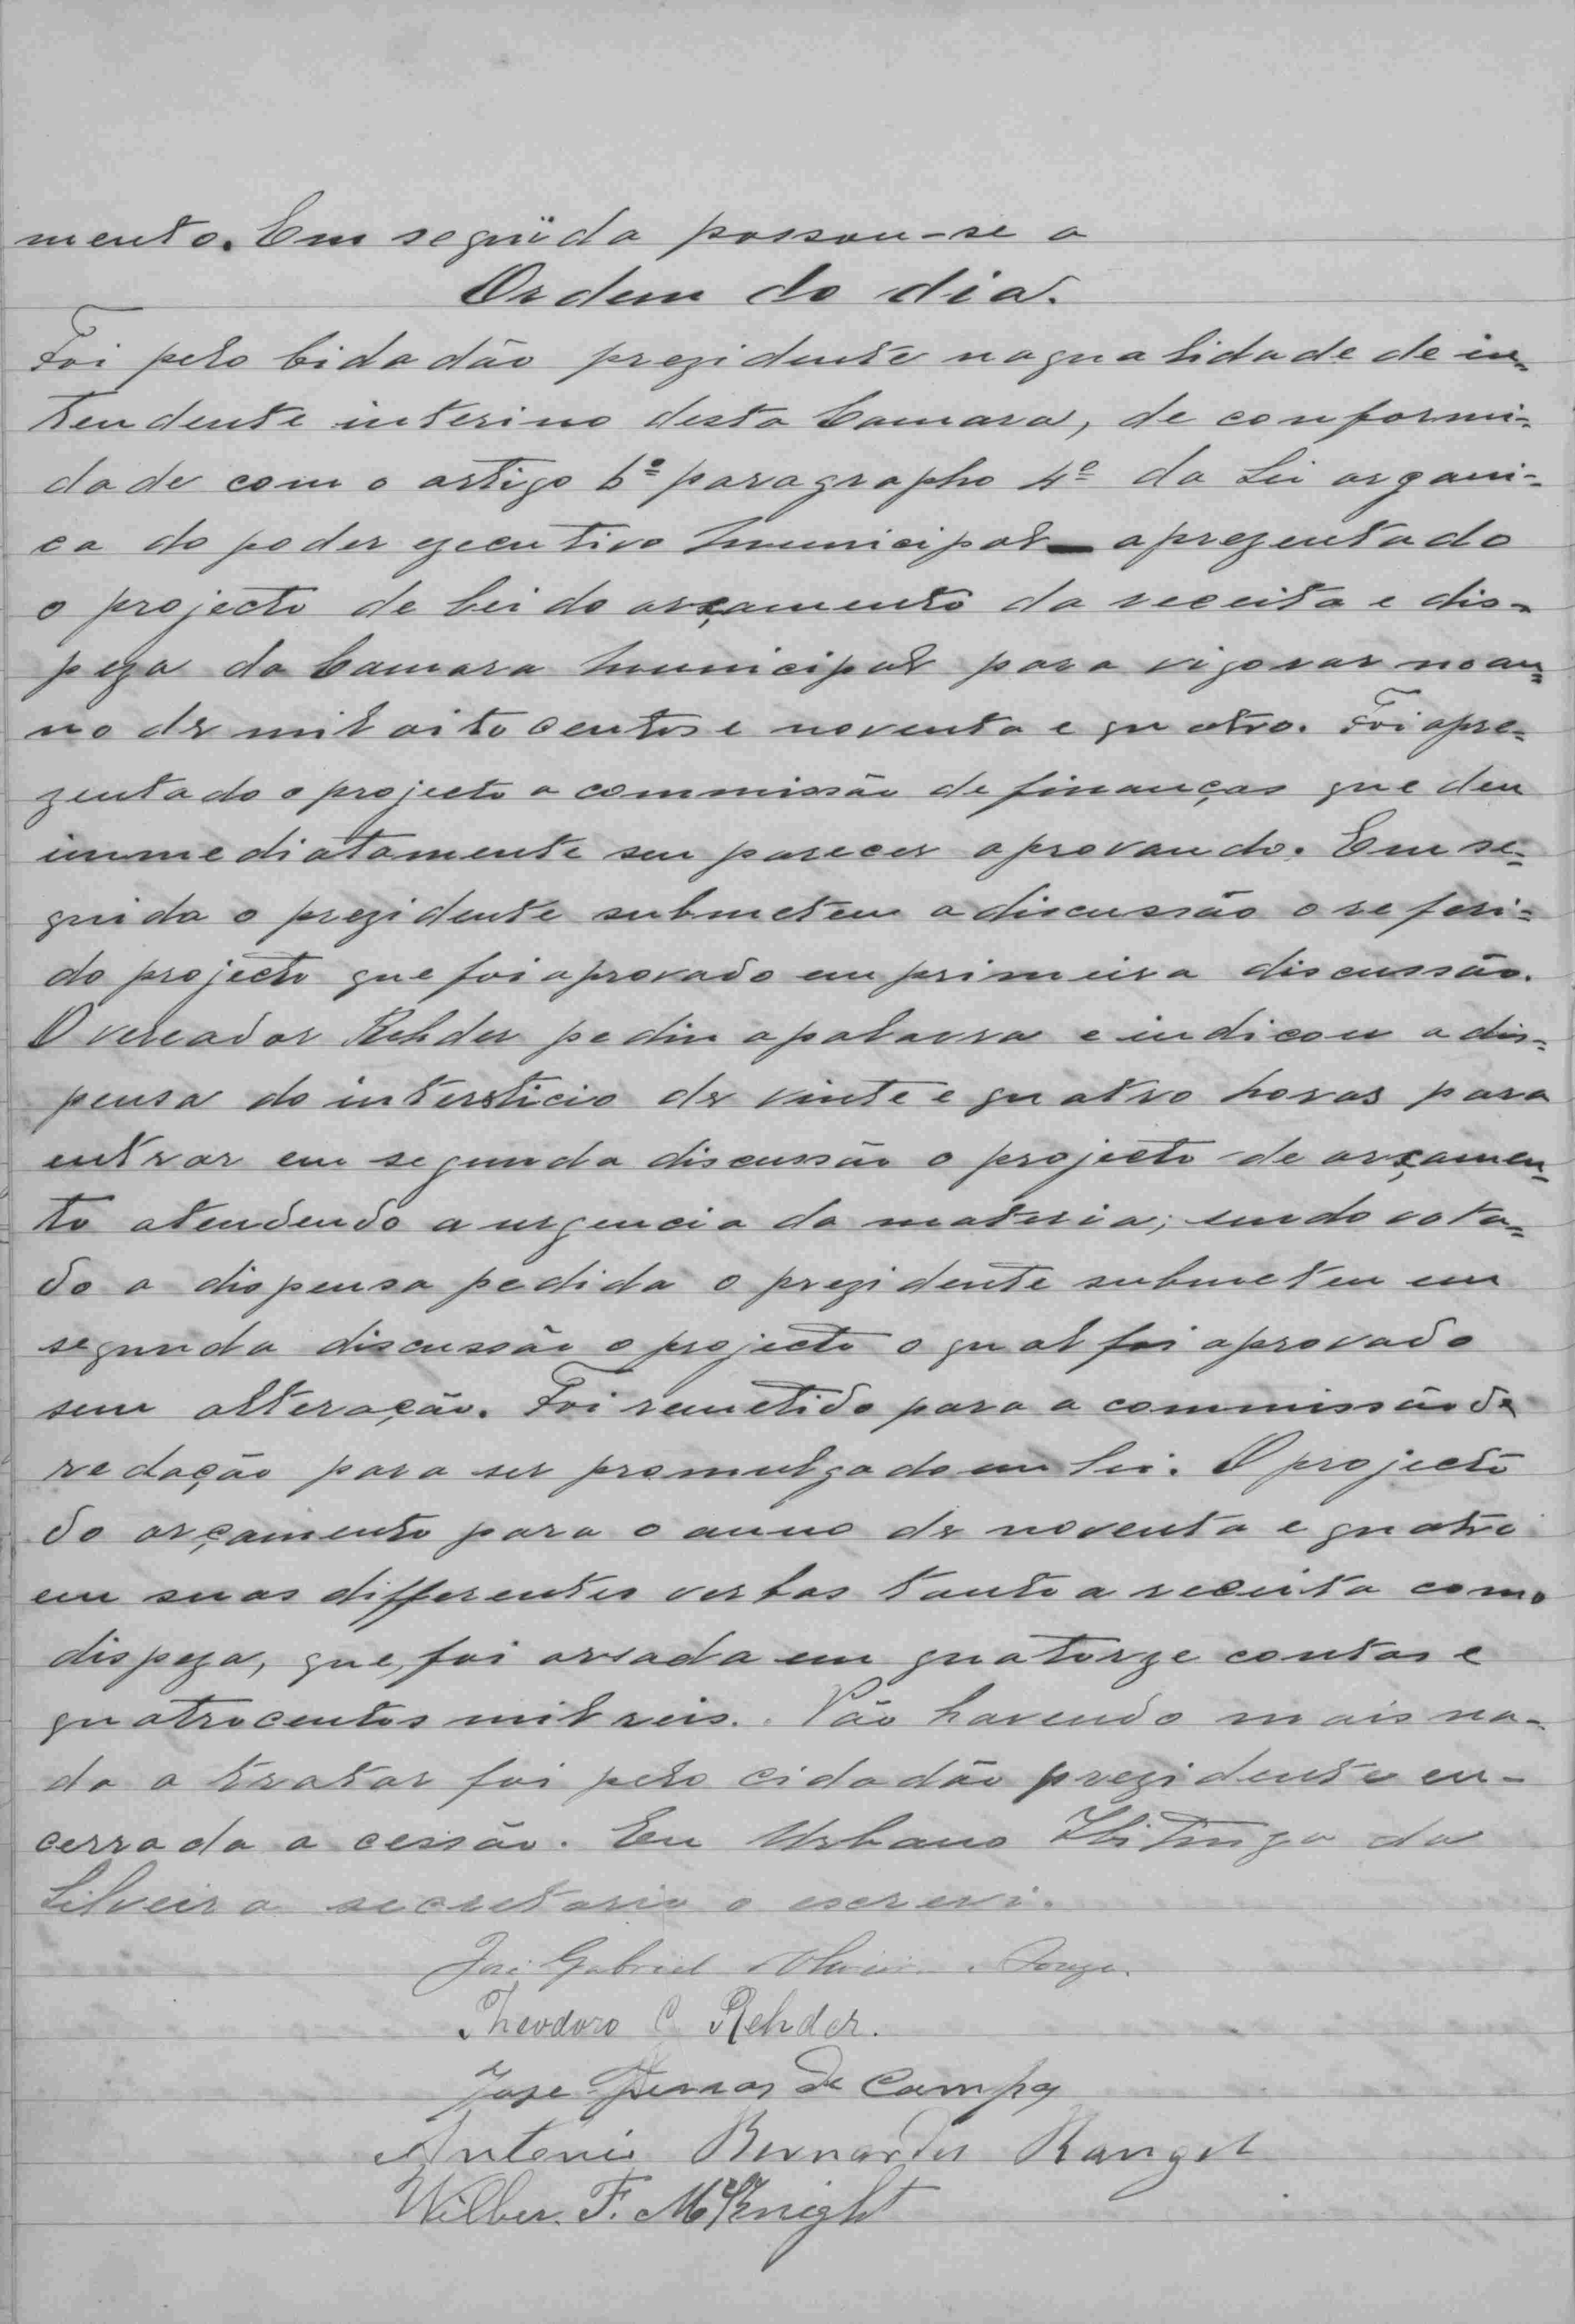 mento. Em seguida passou-se a
Ordem do dia.
Foi pelo Cidadão prezidente na qualidade de in-
tendente interino desta Camara, de conformi-
dade com o artigo 6º paragrapho 4º da Lei organi-
ca do poder ezecutivo municipal aprezentado
o projecto de Lei do orçamento da receita e dis-
peza da Camara municipal para vigorar no an-
no de mil oitocentos e noventa e quatro. Foi apre-
zentado o projecto a commissão de finanças que deu
immediatamente seu parecer aprovando. Em se-
guida o prezidente submeteu a discussão o referi-
do projecto que foi aprovado em primeira discussão.
O vereador Rehder pediu a palavra e indicou a dis-
pensa do intersticio de vinte e quatro horas para
entrar em segunda discussão o projecto de orçamen-
to atendendo a urgencia da materia; sendo vota-
do a dispensa pedida o prezidente submeteu em
segunda discussão o projecto o qual foi aprovado
sem alteração. Foi remetido para a commissão de
redação para ser promulgado em Lei. O projecto
do orçamento para o anno de noventa e quatro
em suas differentes verbas tanto a receita como
dispeza, que foi orsada em quatorze contos e
quatrocentos mil reis. Não havendo mais na-
da a tratar foi pelo cidadão prezidente en-
cerrada a cessão. Eu Urbano Ibitinga da
Silveira secretario o escrevi.
José Gabriel Oliveira Souza.
Theodoro C Rehder.
Jose Ferras de Campos
Antonio Bernardes Rangel
Wilber. F. McKnight